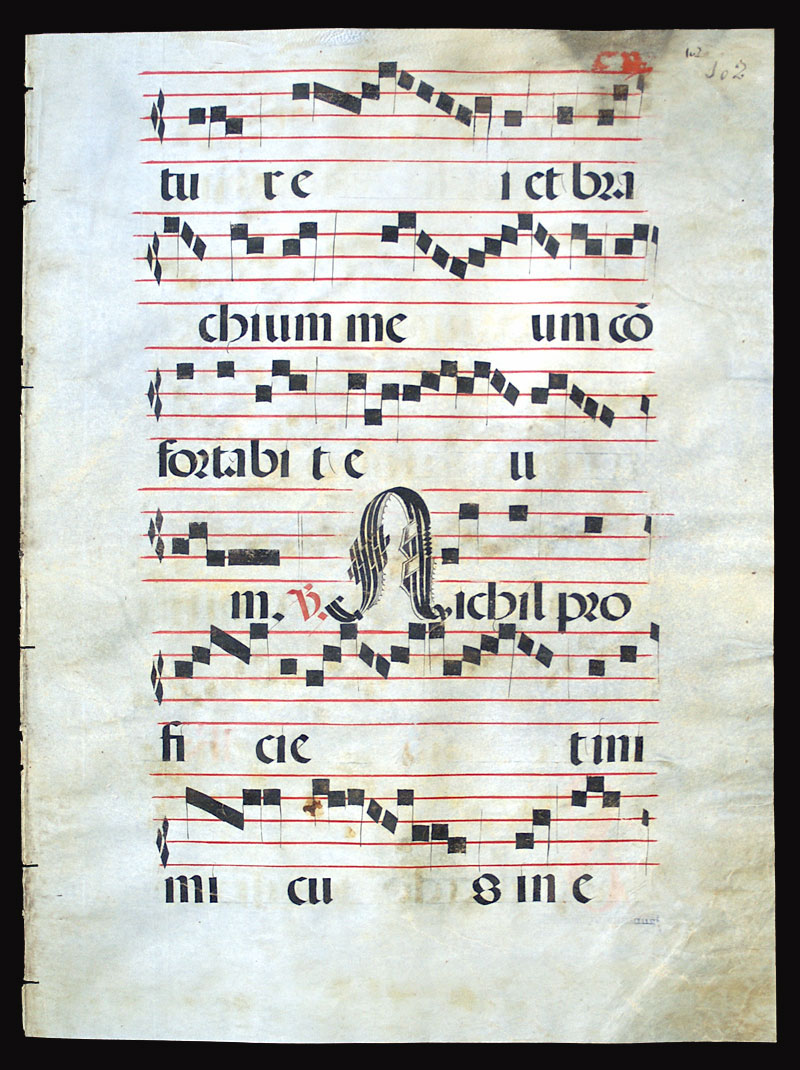 102
102
tu re i et bra
chium me um cō
fortabi te u
m. V. Nichil pro
fi cie t ini
mi cu s in e